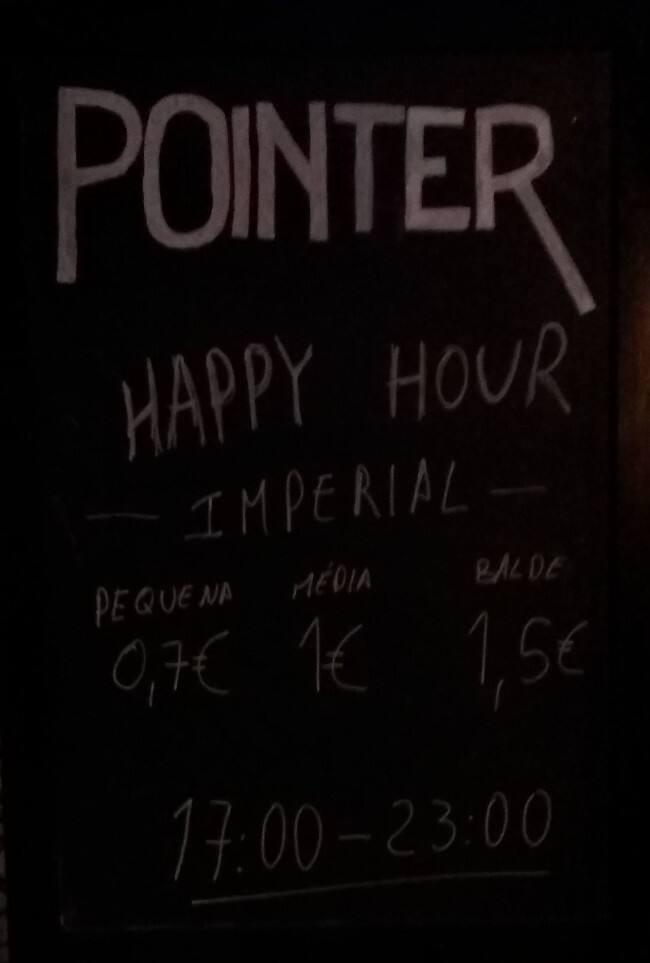 POINTER
HAPPY HOUR
— IMPERIAL —
PEQUENA MÉDIA BALDE
0,7€ 1€ 1,5€
17:00 – 23:00